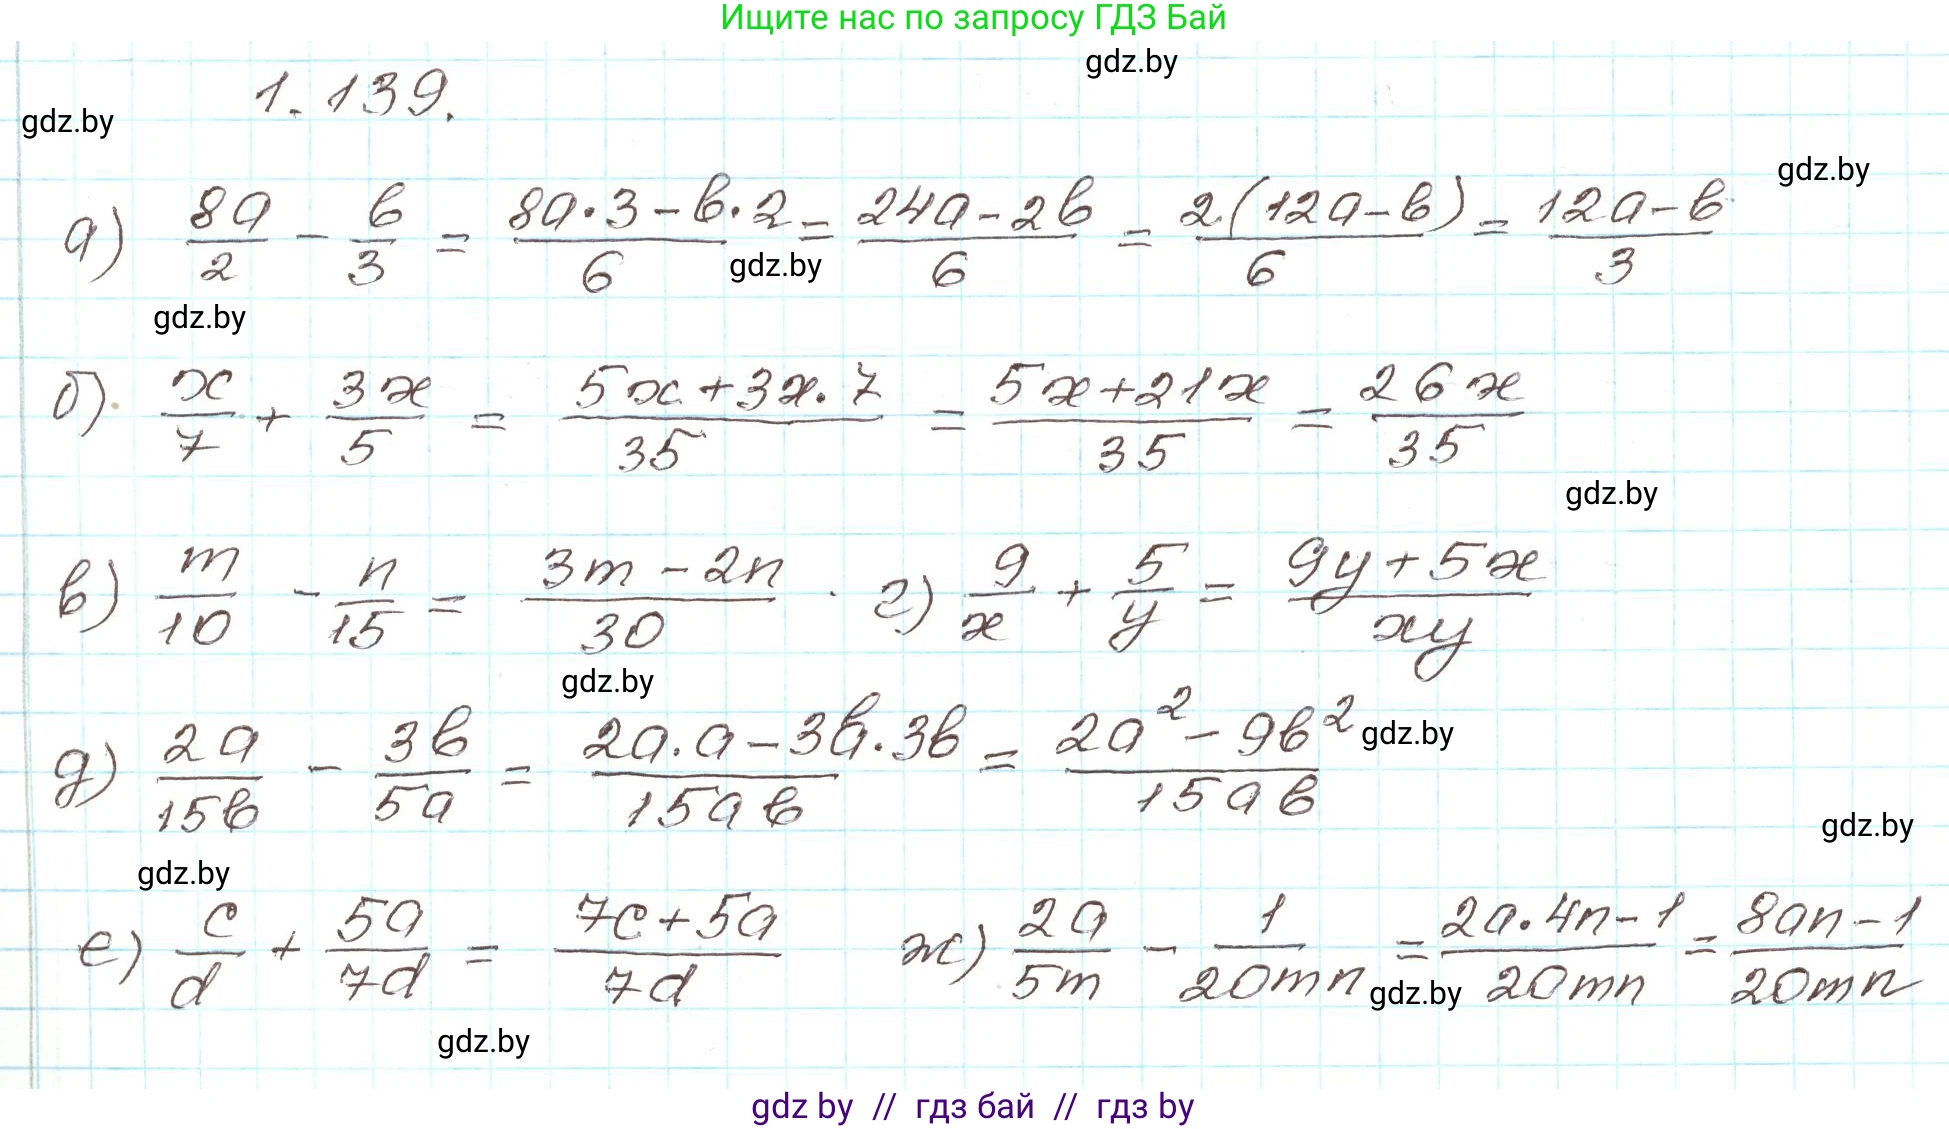 Ищите нас по запросу ГДЗ Бай
gdz.by
1.139.
gdz.by
gdz.by
а) 8a/2 - b/3 = (8a·3-b·2)/6 = (24a-2b)/6 = 2(12a-b)/6 = (12a-b)/3
gdz.by
gdz.by
б) x/7 + 3x/5 = (5x+3x·7)/35 = (5x+21x)/35 = 26x/35
gdz.by
в) m/10 - n/15 = (3m-2n)/30 . г) 9/x + 5/y = (9y+5x)/xy
gdz.by
д) 2a/15b - 3b/5a = (2a·a-3b·3b)/15ab = (2a²-9b²)/15ab
gdz.by
gdz.by
gdz.by
е) c/d + 5a/7d = (7c+5a)/7d ж) 2a/5m - 1/20mn = (2a·4n-1)/20mn = (8an-1)/20mn
gdz.by
gdz.by
gdz by // гдз бай // гдз by